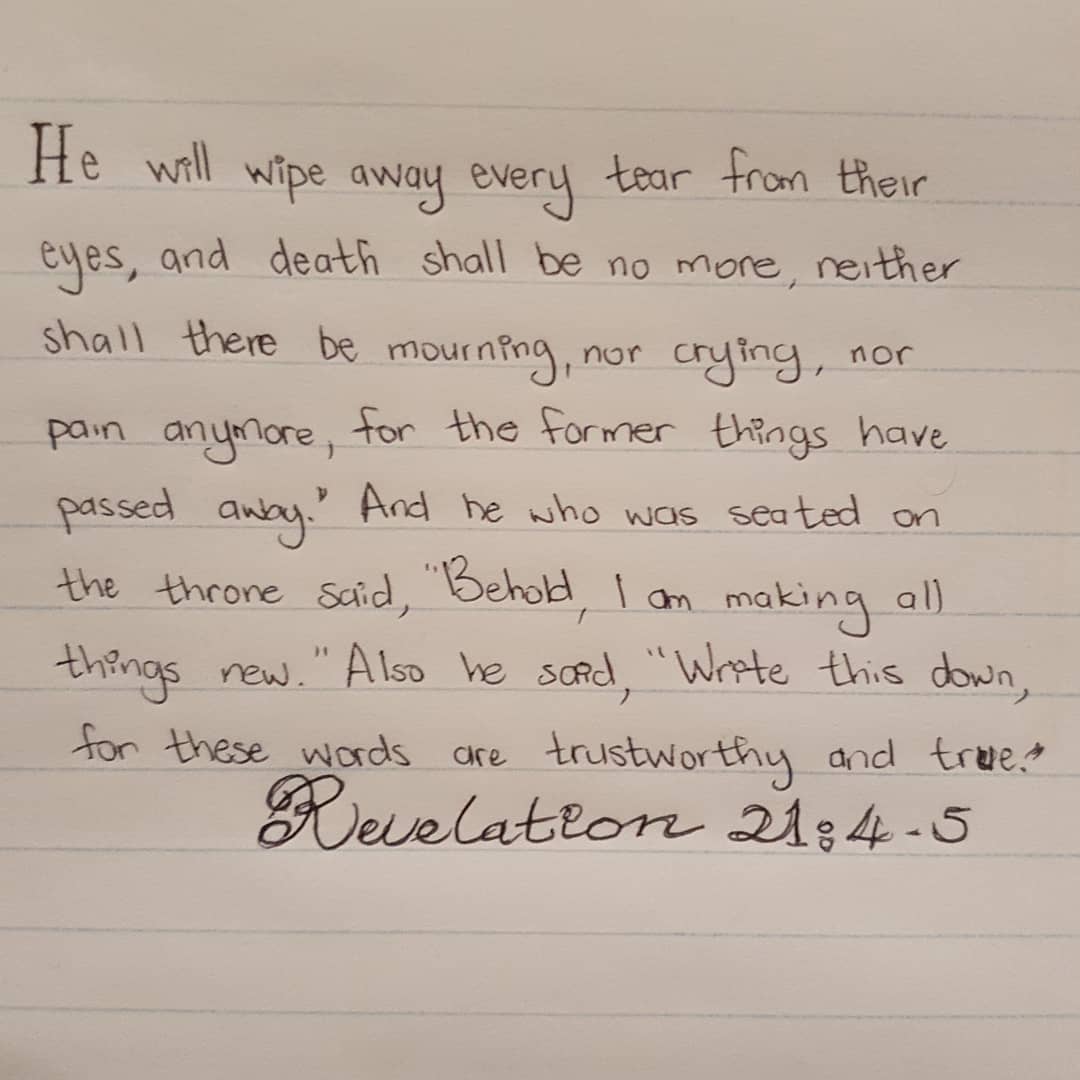 He will wipe away every tear from their
eyes, and death shall be no more, neither
shall there be mourning, nor crying, nor
pain anymore, for the former things have
passed away." And he who was seated on
the throne said, "Behold, I am making all
things new." Also he said, "Write this down,
for these words are trustworthy and true."
Revelation 21:4-5